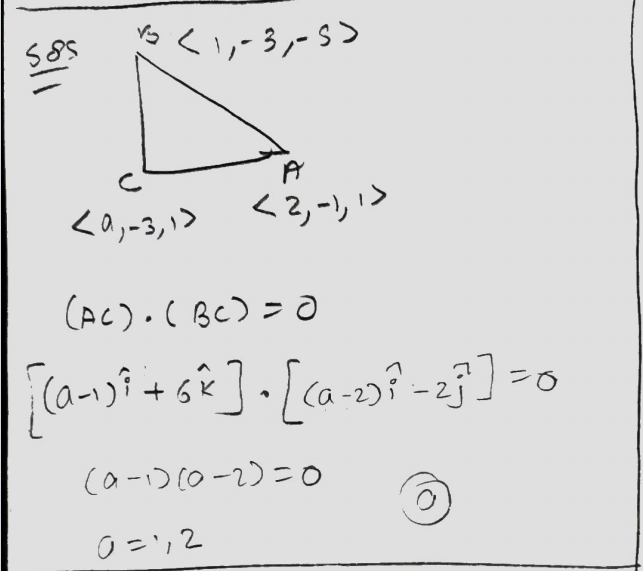 585 B <1,-3,-5>
C A
<a,-3,1> <2,-1,1>
(AC).(BC) = 0
[(a-1)î + 6k̂].[(a-2)î - 2ĵ] = 0
(a-1)(a-2) = 0
a = 1, 2 (a)